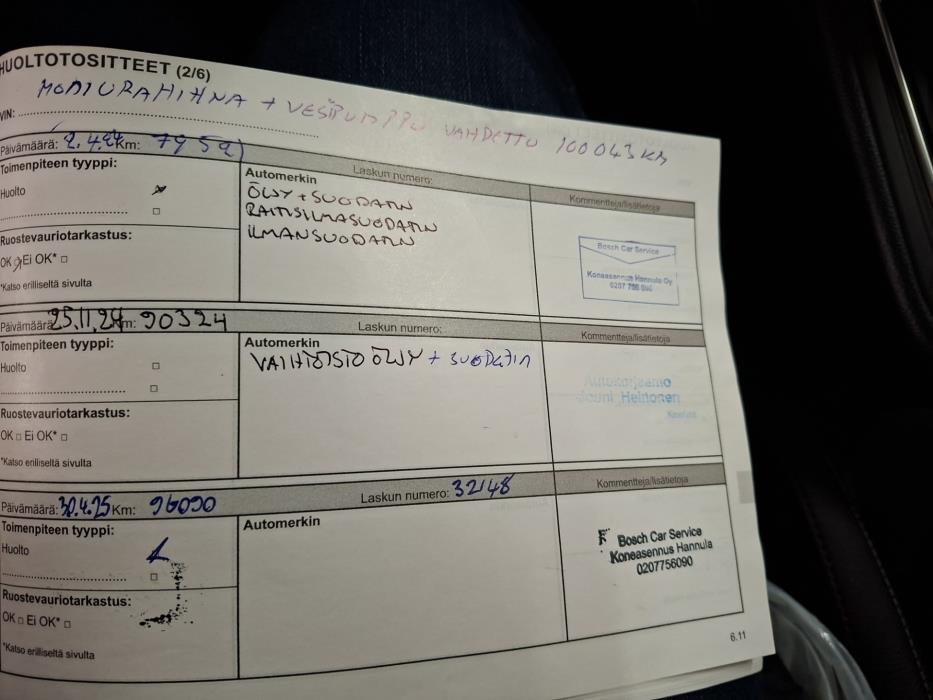 HUOLTOTOSITTEET (2/6)
MONIURAHIHNA + VESIPUMPPU VAHDETTU 100043 KM
VIN:
Päivämäärä: 2.4.24 Km: 79592
Laskun numero:
Toimenpiteen tyyppi:
Huolto
Automerkin
ÖLJY + SUODATIN
RAITISILMASUODATIN
ILMANSUODATIN
Kommentteja/lisätietoja
Bosch Car Service
Koneasennus Hannula Oy
0207 756 090
Ruostevauriotarkastus:
OK Ei OK* □
*Katso erilliseltä sivulta
Päivämäärä: 25.11.24 Km: 90324
Laskun numero:
Toimenpiteen tyyppi:
Huolto □
□
Automerkin
VAIHTEISTOÖLJY + SUODATIN
Kommentteja/lisätietoja
Autokorjaamo
Jouni Heinonen
Ruostevauriotarkastus:
OK □ Ei OK* □
*Katso erilliseltä sivulta
Päivämäärä: 30.4.25 Km: 96090
Laskun numero: 32148
Toimenpiteen tyyppi:
Huolto
□
Automerkin
Kommentteja/lisätietoja
Bosch Car Service
Koneasennus Hannula
0207756090
Ruostevauriotarkastus:
OK □ Ei OK* □
*Katso erilliseltä sivulta
6.11